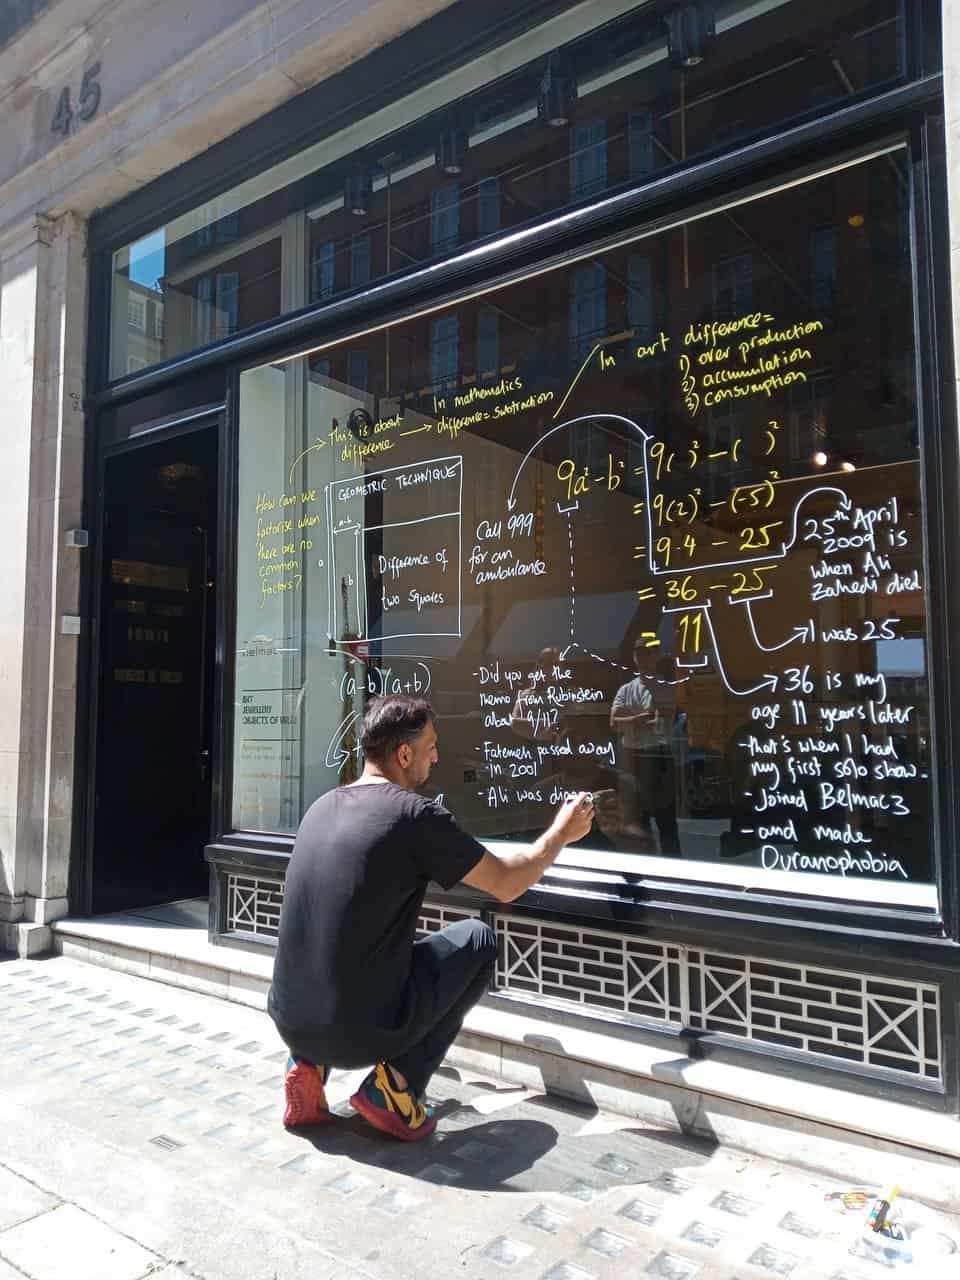 45
In art difference=
1) over production
2) accumulation
3) consumption
In mathematics
difference = subtraction
This is about
difference
How can we
factorise when
there are no
common
factors?
GEOMETRIC TECHNIQUE
a-b
b
Difference of
two squares
(a-b)(a+b)
Call 999
for an
ambulance
9a²-b² = 9( )² - ( )²
= 9(2)² - (-5)²
= 9.4 - 25
= 36 - 25
= 11
25th April
2009 is
when Ali
Zahedi died
I was 25.
36 is my
age 11 years later
- that's when I had
my first solo show.
- Joined Belmacz
- and made
Ouranophobia
- Did you get the
theme from Rubinstein
about 9/11?
- Fatemeh passed away
in 2001
- Ali was
ART
JEWELLERY
OBJECTS OF